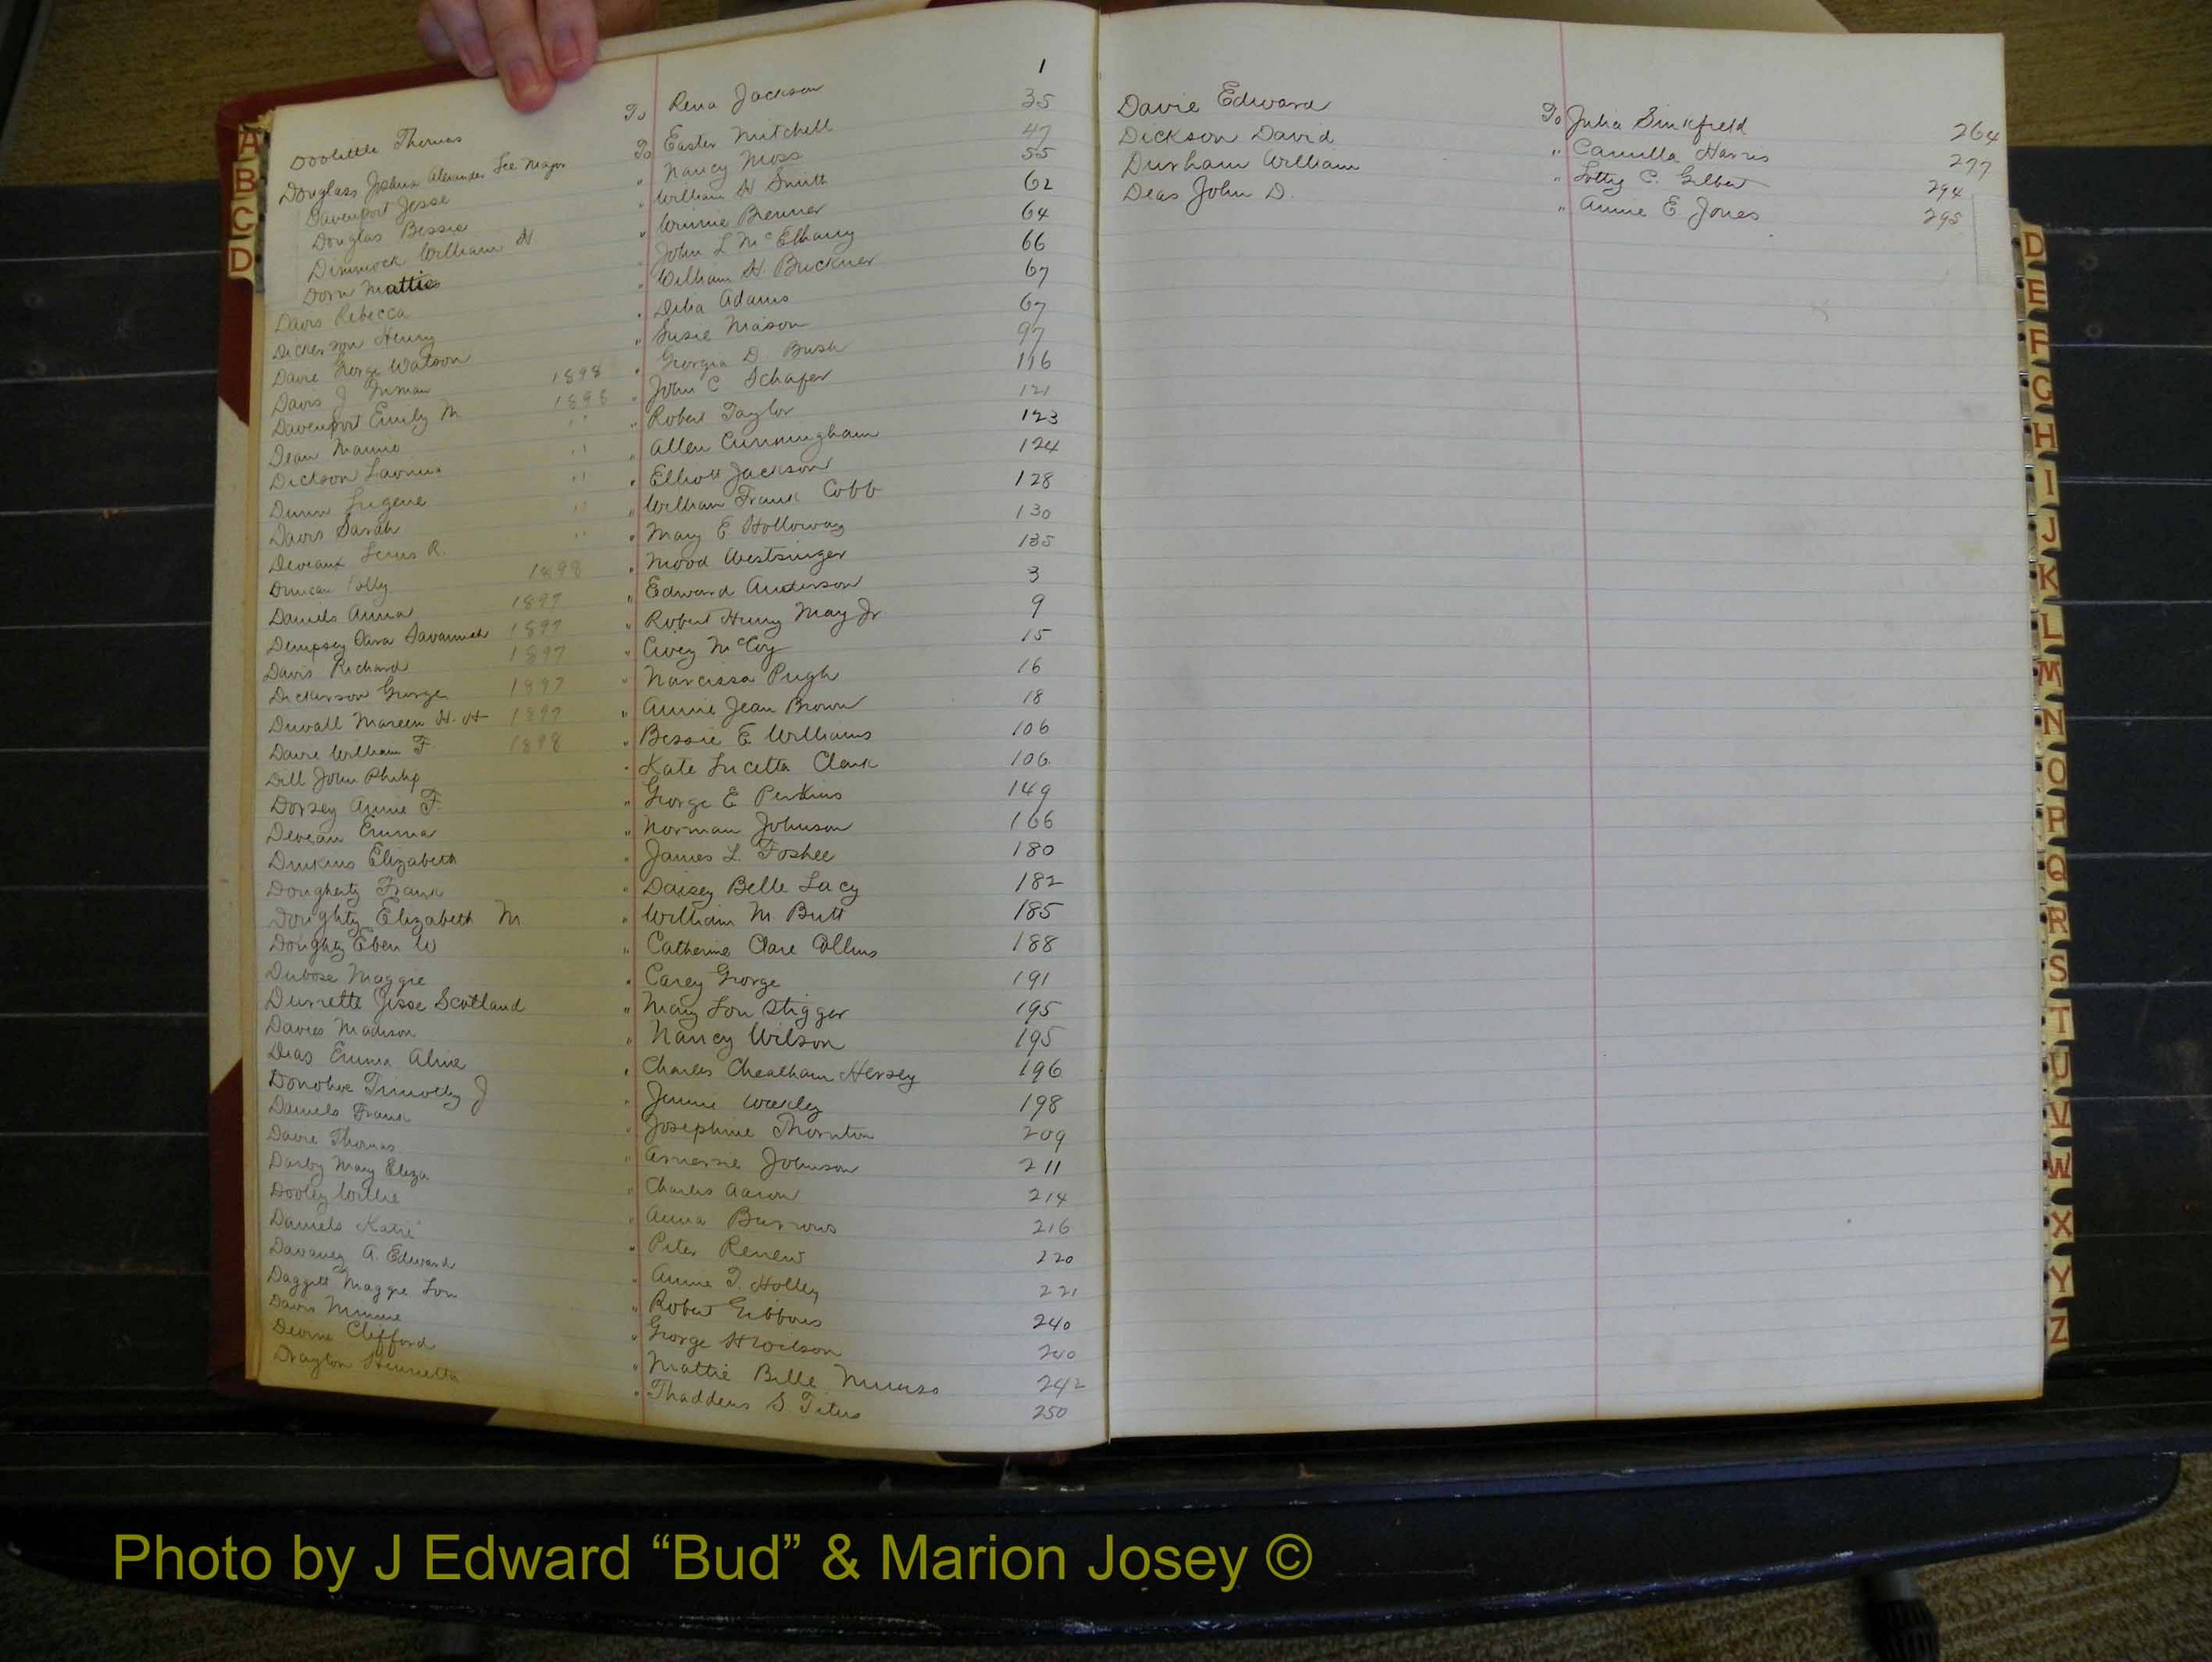 Doolittle Thomas To Rena Jackson 1
Douglass Joshua Alexander Lee Major To Easter Mitchell 35
Davenport Jesse " Nancy Moss 47
Douglas Bessie " William H Smith 55
Dimmock William H " Winnie Brenner 62
Dorn Mattie " John L McElhany 64
Davis Rebecca " William H. Buckner 66
Dickerson Henry " Julia Adams 67
Davie George Watson " Susie Mason 67
Davis J Inman 1898 " Georgia D Bush 97
Davenport Emily M 1898 " John C Schafer 116
Dean Mamie " " Robert Taylor 121
Dickson Lavinia " " Allen Cunningham 123
Dunn Eugene " " Elliott Jackson 124
Davis Sarah " " William Frank Cobb 128
Deveaux Lewis R. " " Mary E Holloway 130
Duncan Polly 1898 " Mood Westsinger 135
Daniels Anna 1897 " Edward Anderson 3
Dempsey Clara Savannah 1897 " Robert Henry May Jr 9
Davis Richard 1897 " McCoy 15
Dickerson George 1897 " Narcissa Pugh 16
Duvall Mareen H. H 1897 " Annie Jean Brown 18
Davie William F. 1898 " Bessie E Williams 106
Dill John Philip " Kate Lucetta Clark 106
Dorsey Annie F. " George E Perkins 149
Deveau Emma " Norman Johnson 166
Dinkins Elizabeth " James L. Foshee 180
Dougherty Frank " Daisey Belle Lacy 182
Doughty Elizabeth M " William M. Butt 185
Doughty Eben W " Catherine Clare Collins 188
Dubose Maggie " Carey George 191
Durrette Jesse Scotland " Mary Lou Stigger 195
Davies Madison " Nancy Wilson 195
Deas Emma Aline " Charles Cheatham Hersey 196
Donohoe Timothy J " Jennie 198
Daniels Frank " Josephine Thornton 209
Davie Thomas " Johnson 211
Darby Mary Eliza " Charles Aaron 214
Dooley Willie " Anna Burrows 216
Daniels Katie " Peter Renew 220
Davaney A. Edward " Annie T. Holley 221
Daggett Maggie Lou " Robert Gibbons 240
Davis Minnie " George H Wilson 240
Devine Clifford " Mattie Belle 242
Drayton Henrietta " Thaddeus S Titus 250
Davie Edward To Julia Sinkfield 264
Dickson David " Camilla Harris 277
Durham William " Lotty C. Gilbert 294
Deas John D. " Annie E Jones 295
A
B
C
D
D
E
F
G
H
I
J
K
L
M
N
O
P
Q
R
S
T
U
V
W
X
Y
Z
Photo by J Edward “Bud” & Marion Josey ©